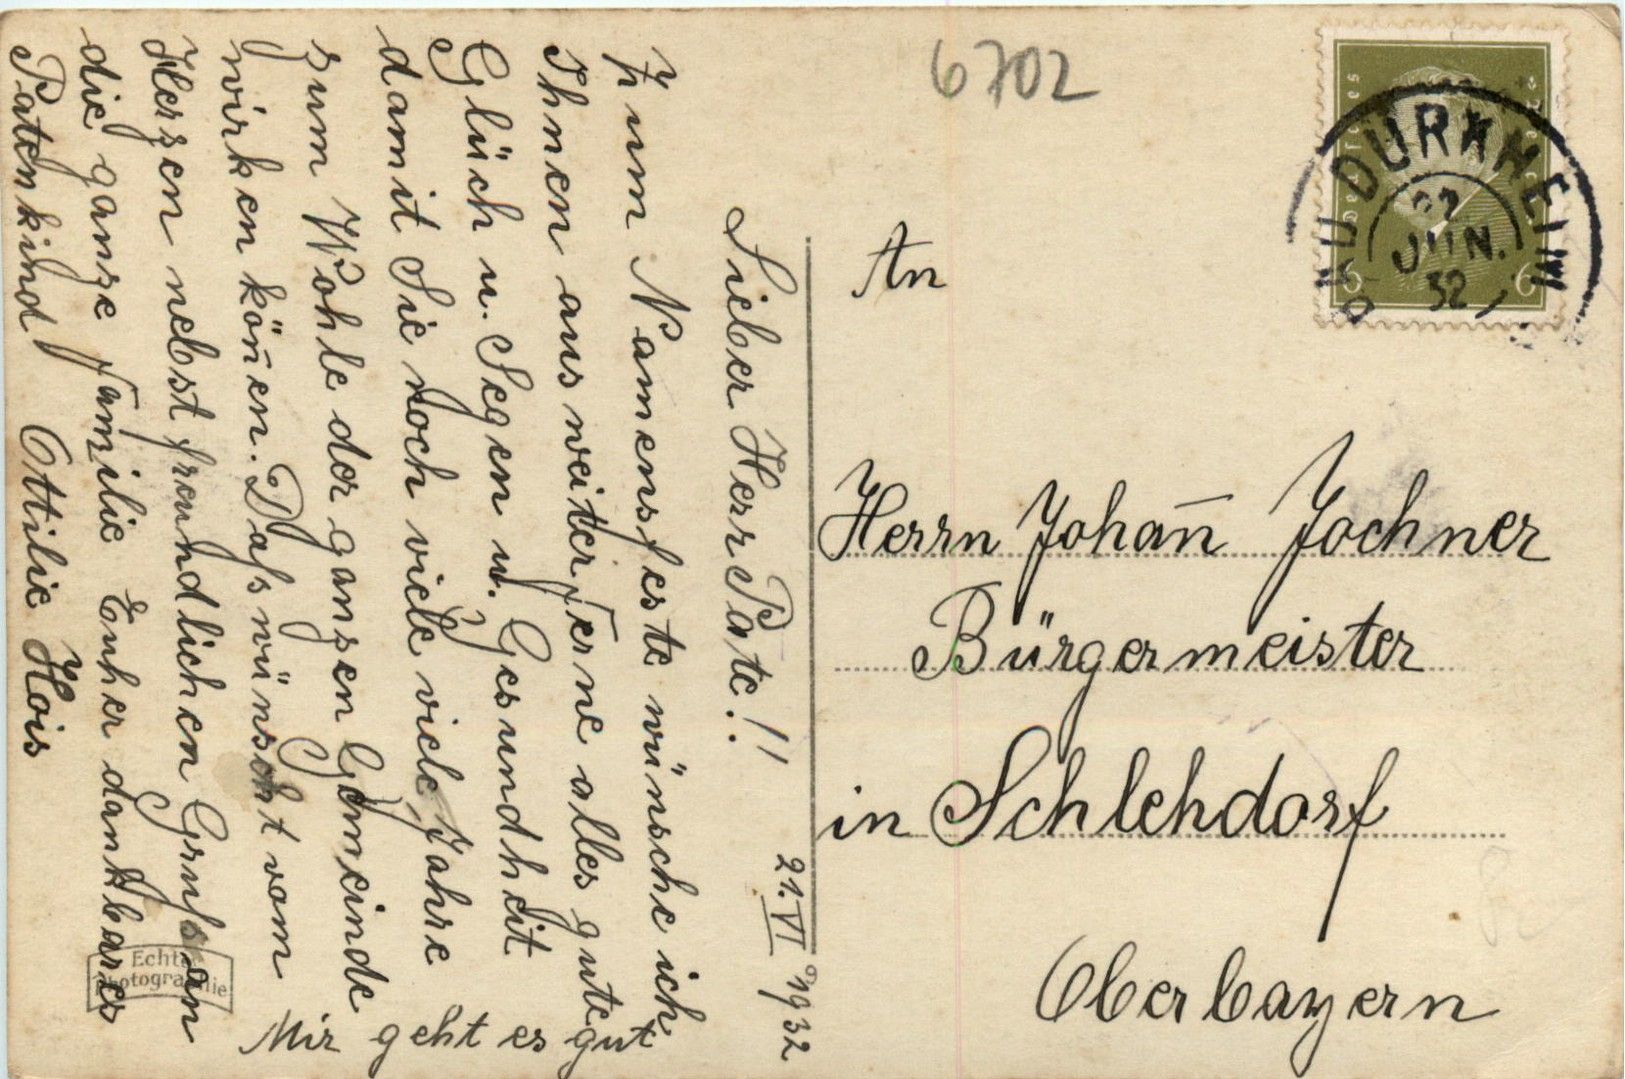 6702
Deutsches Reich
6 6
BAD DÜRKHEIM
22
JUN.
32
21. VI 1932
Lieber Herr Pate!!
Zum Namensfeste wünsche ich
Ihnen aus weiter Ferne alles gute
Glück u. Segen u. Gesundheit
damit Sie noch viele viele Jahre
zum Wohle der ganzen Gemeinde
wirken köñen. Daß wünscht vom
Herzen nebst freundlichen Gruß an
die ganze Familie Euher dankbares
Patenkind Ottilie Hois
Mir geht es gut
An
Herrn Johañ Jochner
Bürgermeister
in Schlehdorf
Oberbayern
Echte
Photographie